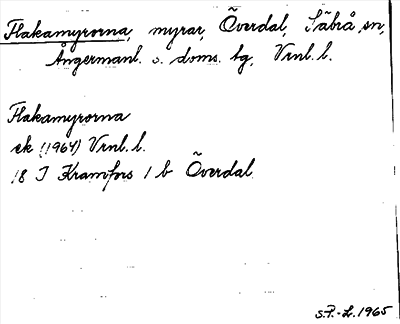 Flakamyrorna, myrar, Överdal, Säbrå sn,
Ångermanl. s. doms. tg, Vrnl. l.
Flakamyrorna
ek (1964) Vrnl. l.
18 I Kramfors 1 b Överdal
S.P.-L. 1965